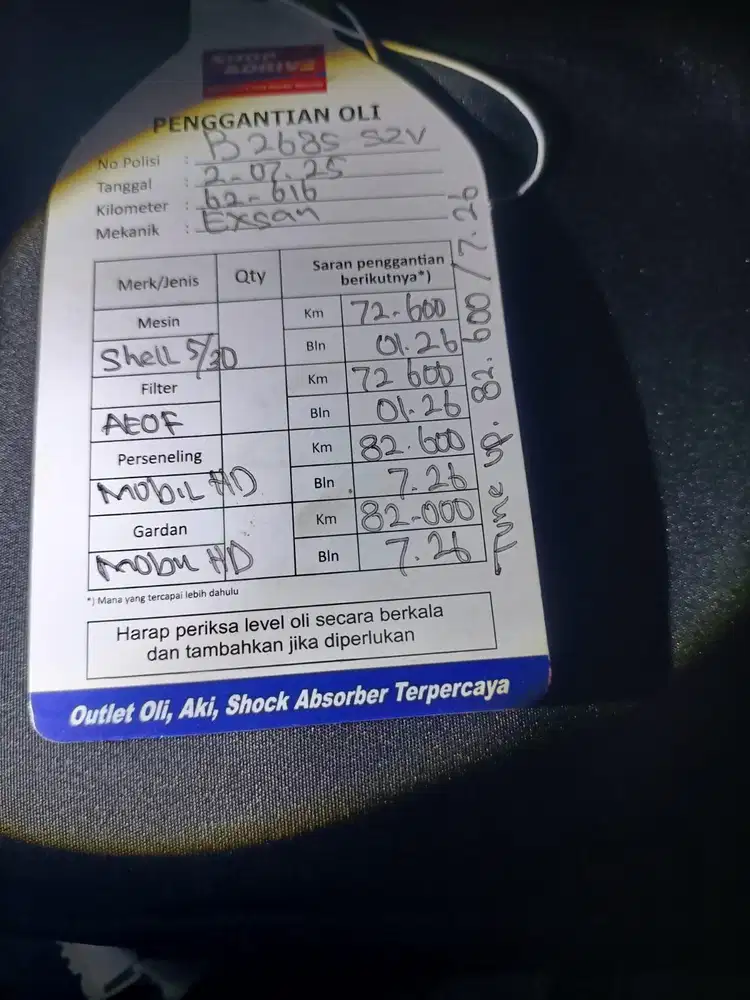 SHOP
&DRIVE
PENGGANTIAN OLI
No Polisi : B 2685 SZV
Tanggal : 2-07.25
Kilometer : 62-616
Mekanik : Exsan
Merk/Jenis Qty Saran penggantian berikutnya*)
Mesin Km 72-600
Shell 5/30 Bln 01.26
Filter Km 72 600
AEOF Bln 01.26
Perseneling Km 82.600
Mobil HD Bln 7.26
Gardan Km 82-000
Mobil HD Bln 7.26
Tune up. 82. 600 / 7.26
*) Mana yang tercapai lebih dahulu
Harap periksa level oli secara berkala
dan tambahkan jika diperlukan
Outlet Oli, Aki, Shock Absorber Terpercaya